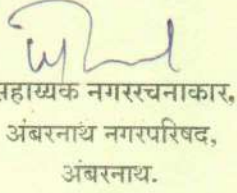 सहाय्यक नगररचनाकार,
अंबरनाथ नगरपरिषद,
अंबरनाथ.